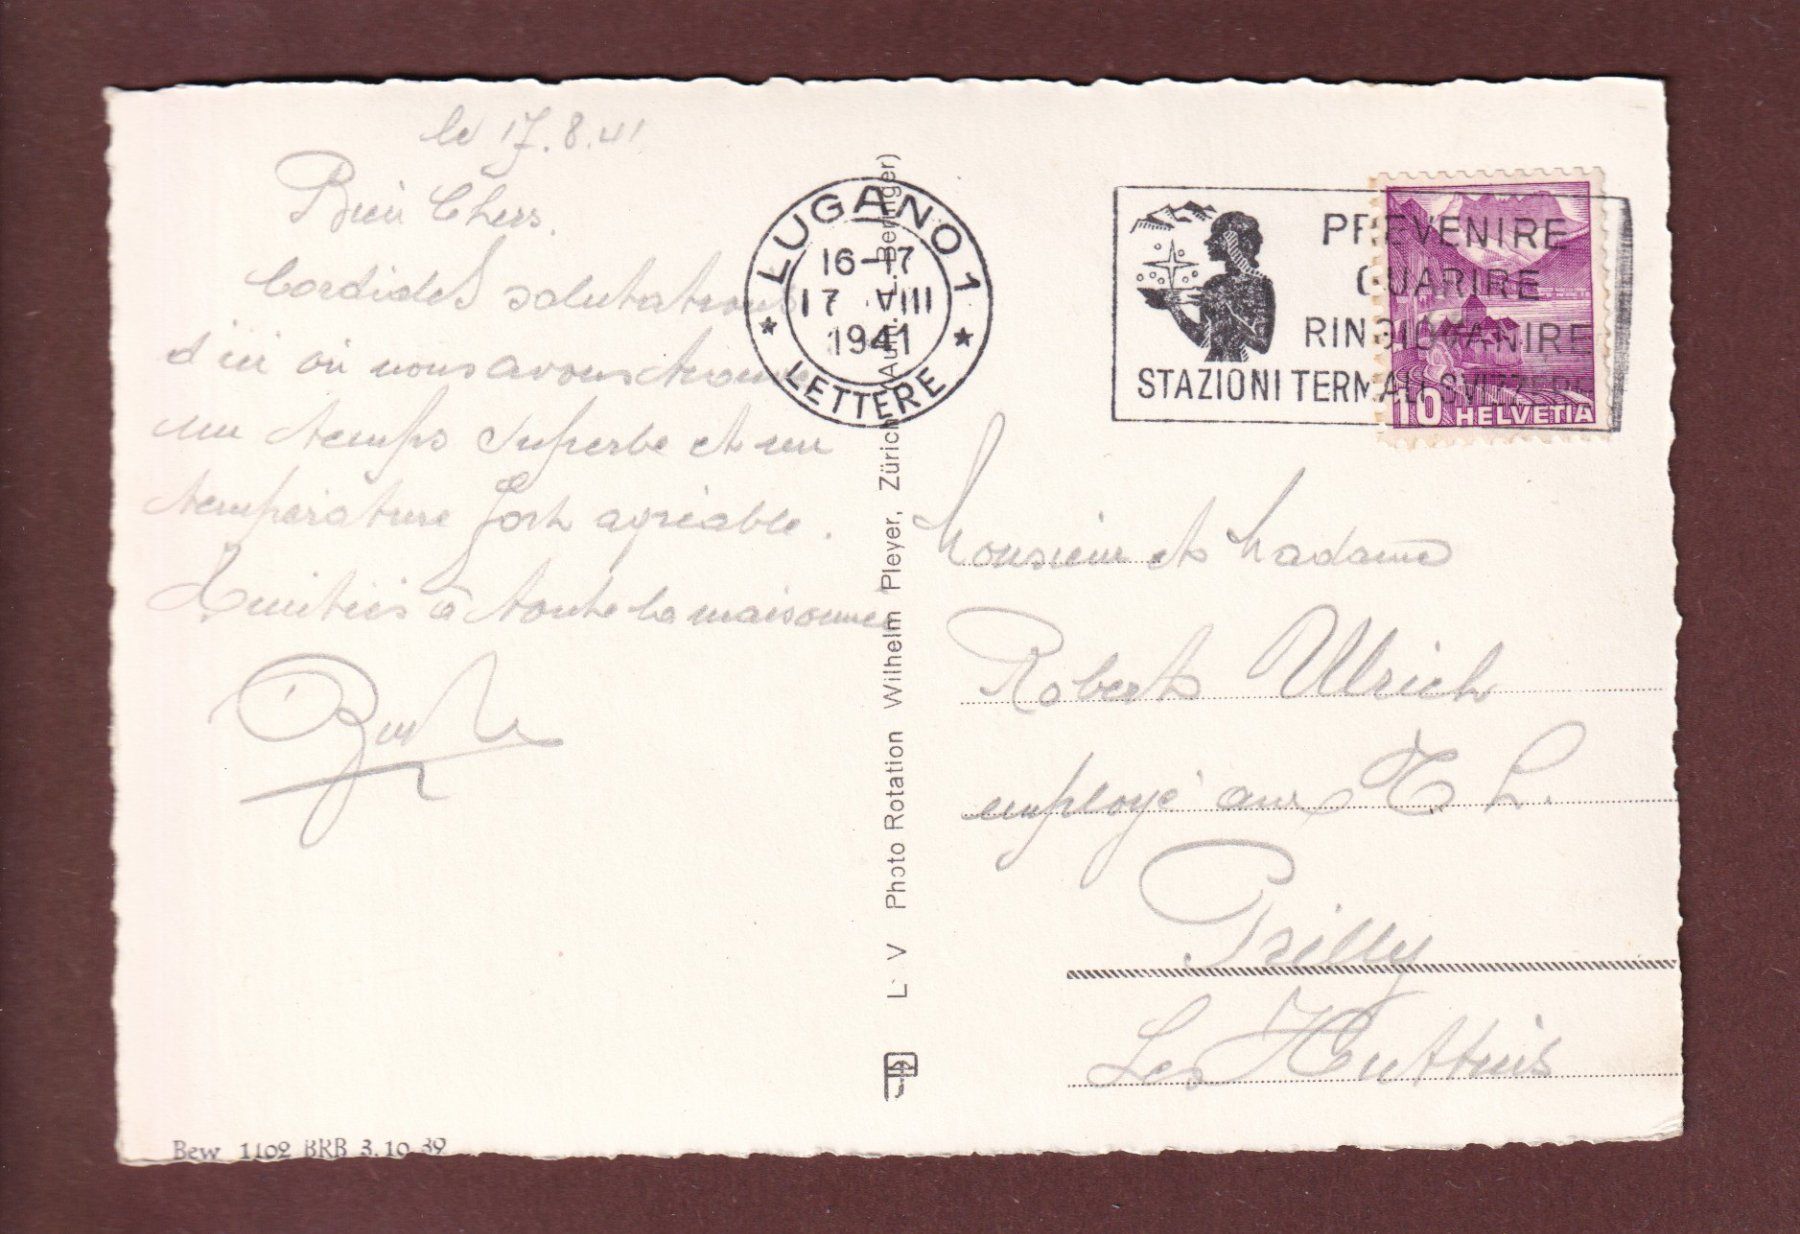 le 17.8.41
Bien Chers.
Cordiales salutations
d'ici où nous avons trouvé
un temps superbe et un
température fort agréable.
Amitiés à toute la maisonnée
LUGANO 1
16-17
17 VIII
1941
LETTERE
PREVENIRE
GUARIRE
RINGIOVANIRE
STAZIONI TERMALI SVIZZERE
10 HELVETIA
Monsieur et Madame
Robert Ulrich
employé aux T L.
Prilly
Les Huttins
L V Photo Rotation Wilhelm Pleyer, Zürich (Aufn. L. Beringer)
Bew 1102 BRB 3.10.39